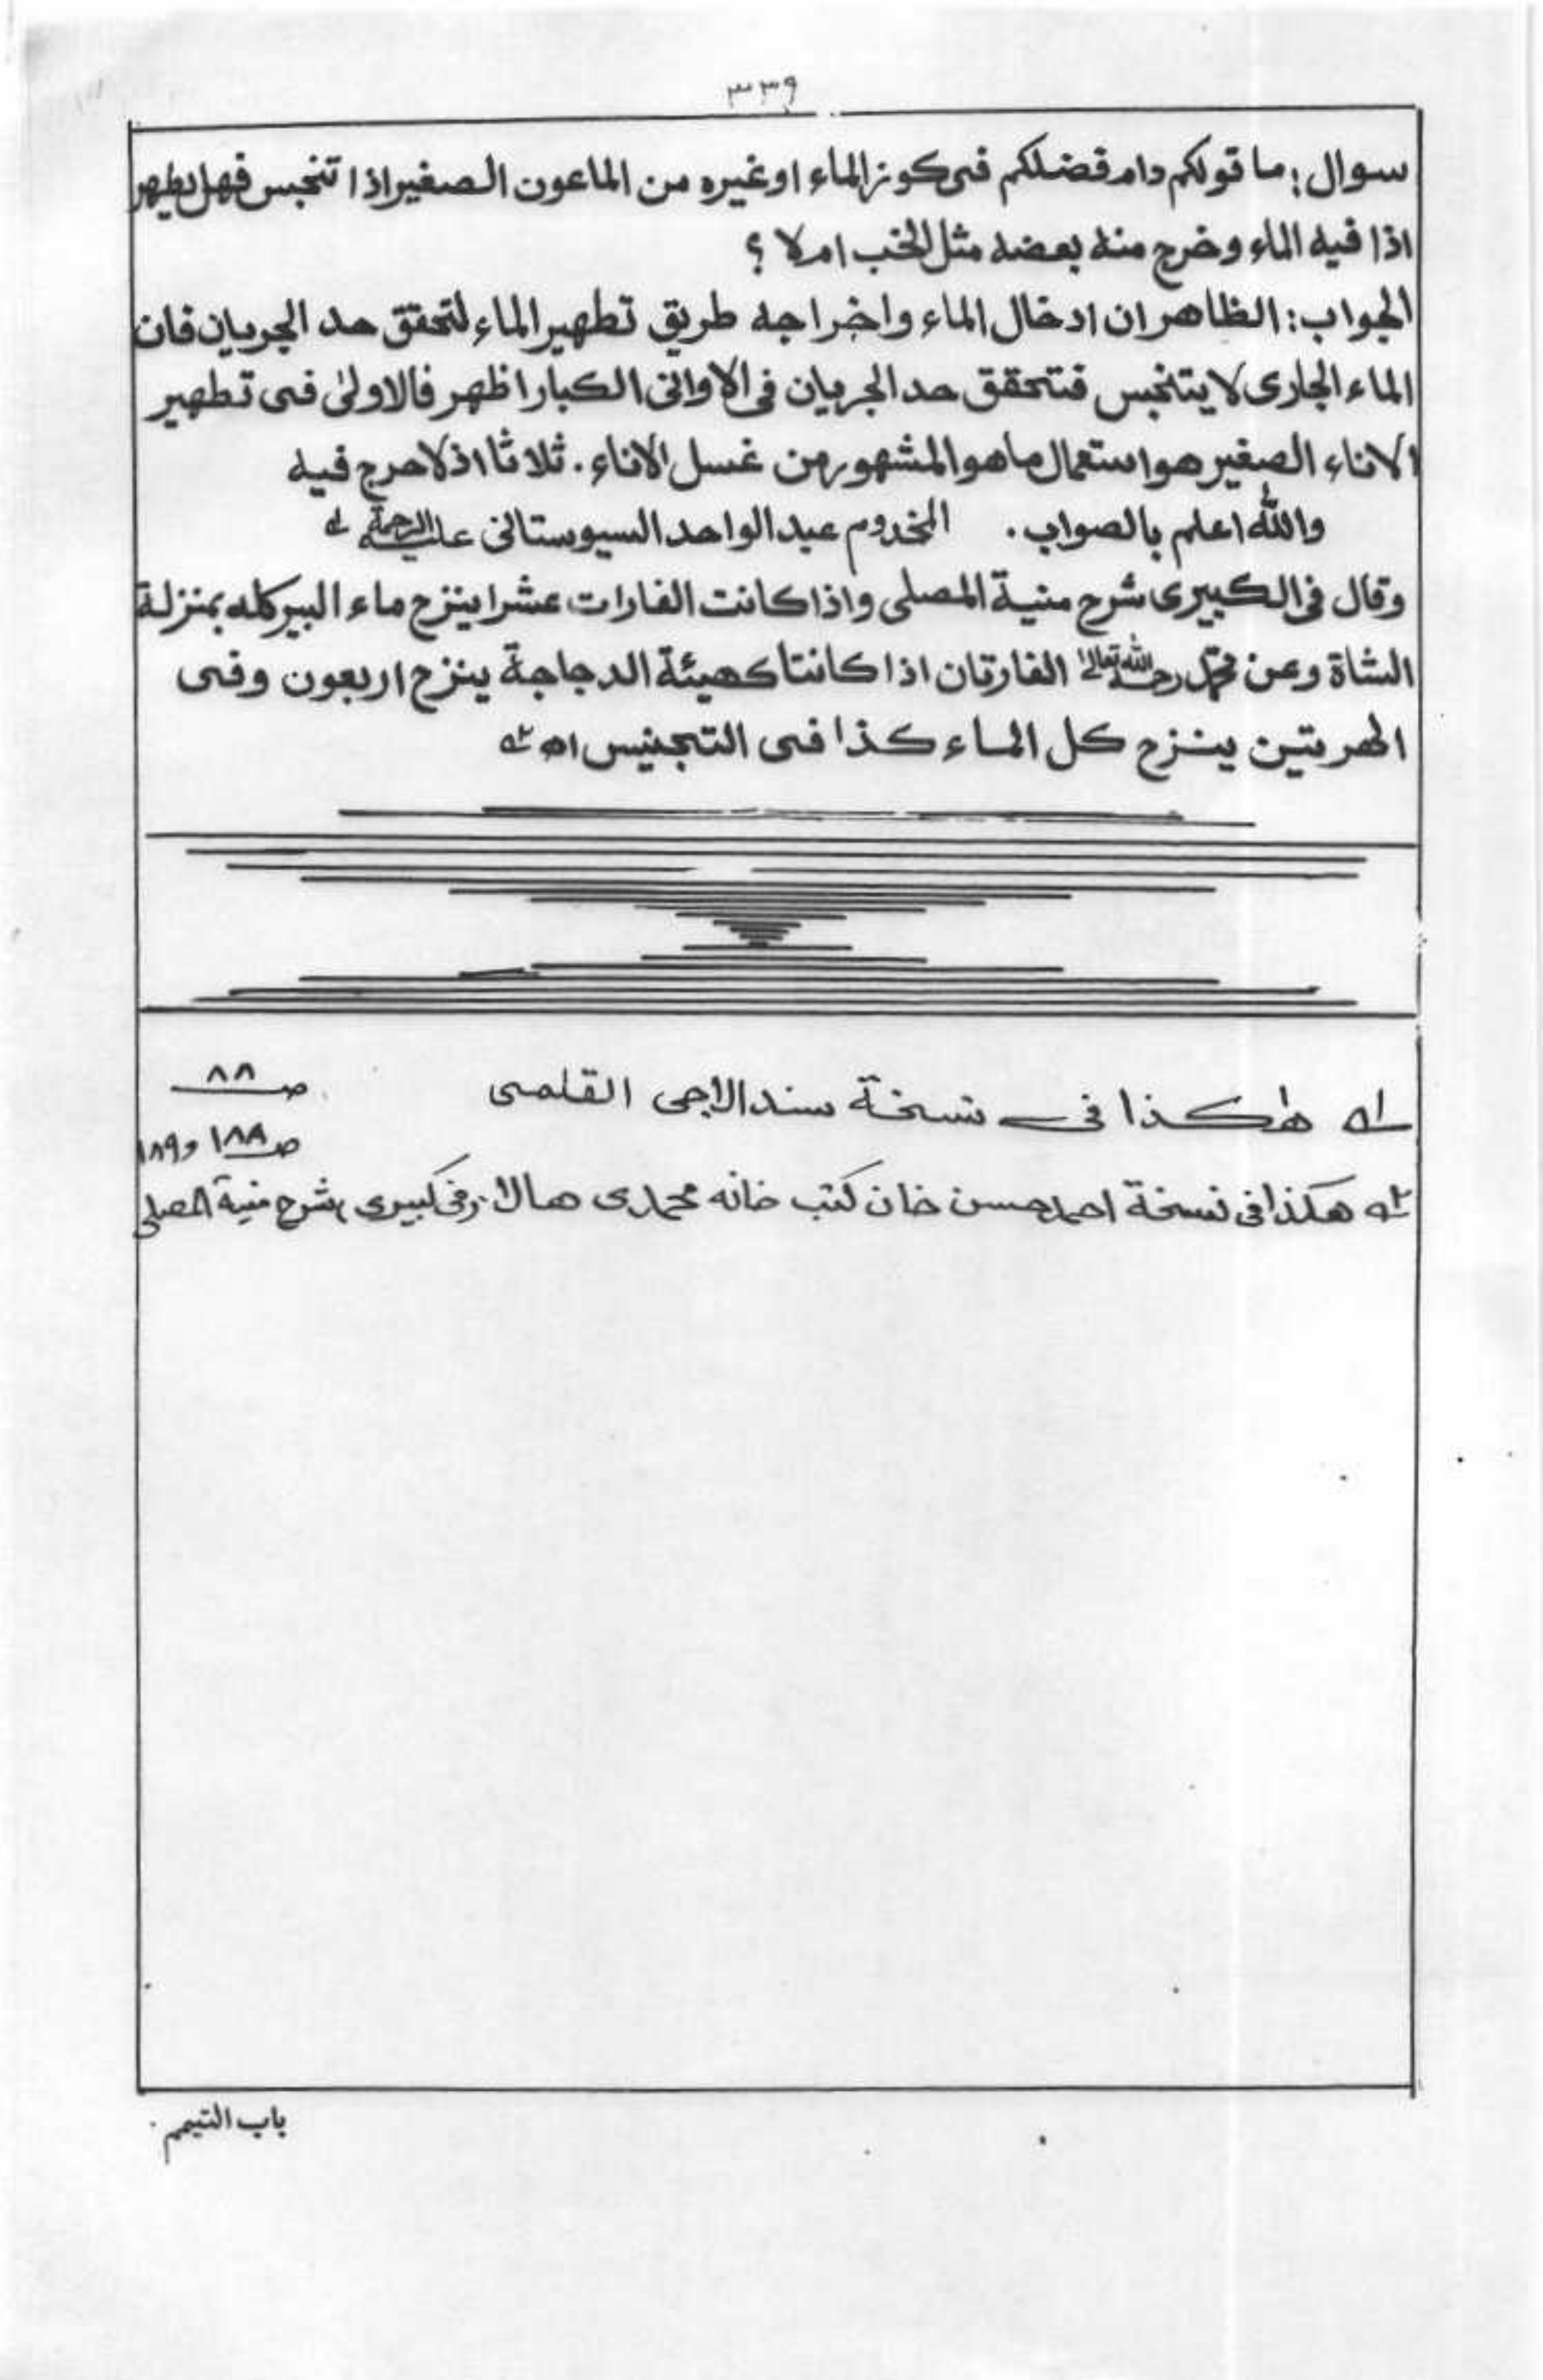 ٣٣٩
سوال: ما قولكم دام فضلكم فى كوز الماء او غيره من الماعون الصغير اذا تنجس فهل يطهر
اذا فيه الماء وخرج منه بعضه مثل الخب ام لا ؟
الجواب: الظاهر ان ادخال الماء واخراجه طريق تطهير الماء لتحقق حد الجريان فان
الماء الجارى لا يتنجس فتحقق حد الجريان فى الاوانى الكبار اظهر فالاولىٰ فى تطهير
الاناء الصغير هو استعمال ما هو المشهور من غسل الاناء. ثلاثا اذ لا حرج فيه
والله اعلم بالصواب. المخدوم عبد الواحد السيوستانى عليه الرحمة له
وقال فى الكبيرى شرح منية المصلى واذا كانت الفارات عشرا ينزح ماء البير كله بمنزلة
الشاة وعن محمد رحمه الله تعالىٰ الفارتان اذا كانتا كهيئة الدجاجة ينزح اربعون وفى
الهرتين ينزح كل الماء كذا فى التجنيس اھ ٢ه
١ه هٰكذا فى نسخة سند الاجى القلمى ص ٨٨
ص ١٨٨ و ١٨٩
٢ه هكذا فى نسخة احمد حسن خان كتب خانه محمدى هالا. وفى كبيرى، شرح منية المصلى
باب التيمم.